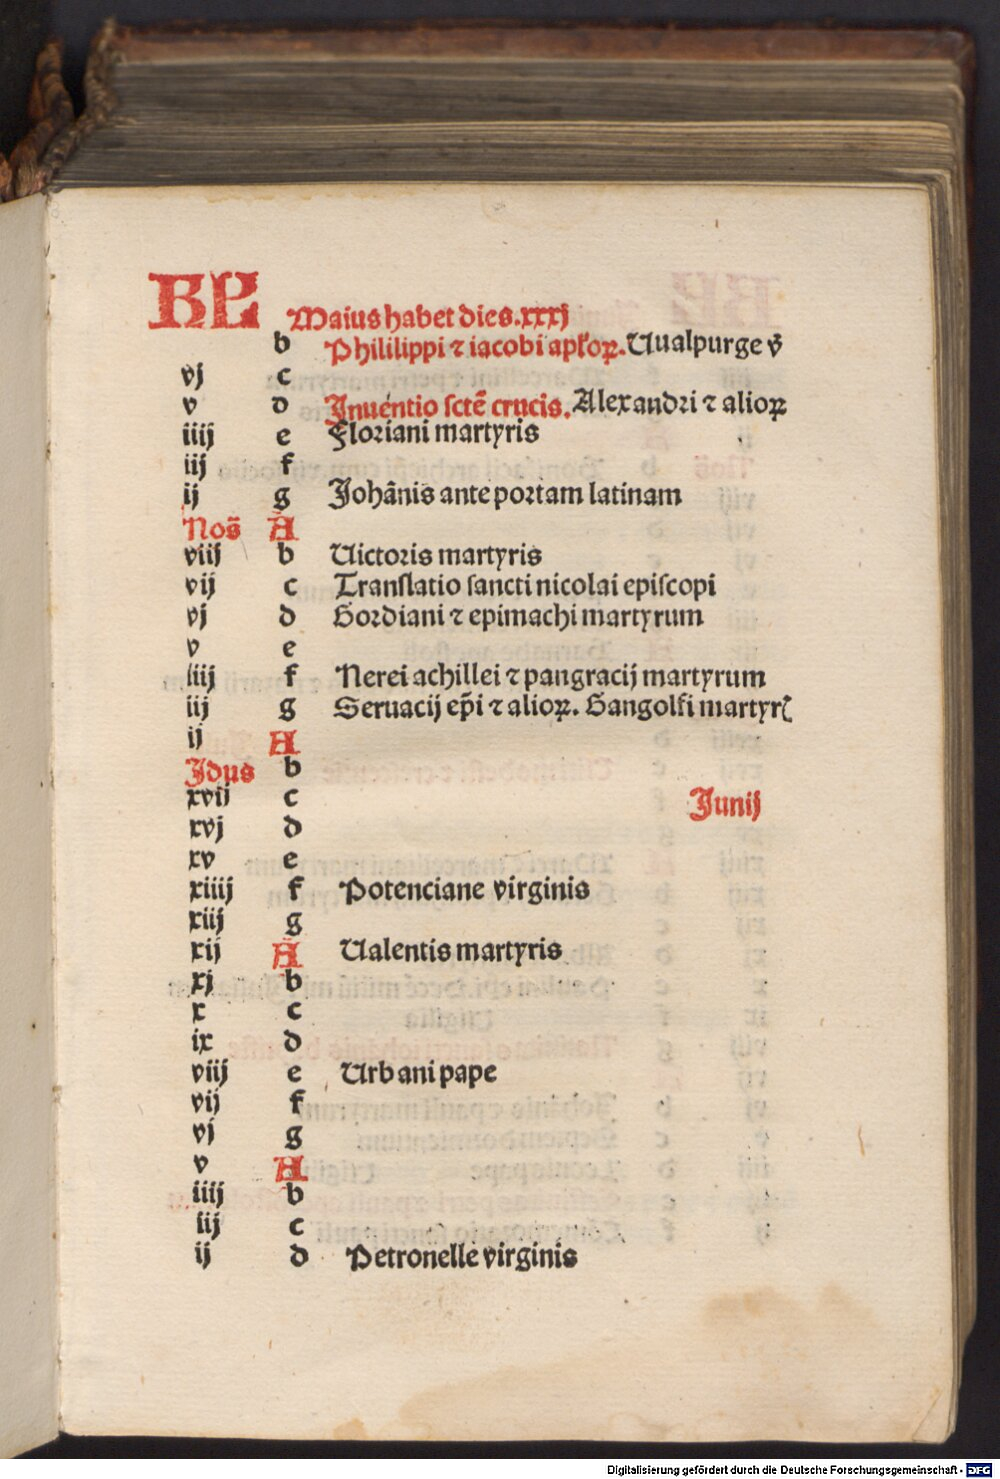 KL Maius habet dies.xxxj
b Phililippi ⁊ iacobi apl'oꝝ. Uualpurge v̄
vj c
v d Inuentio sctē crucis. Alexandri ⁊ alioꝝ
iiij e Floriani martyris
iij f
ij g Johānis ante portam latinam
Nos̄ A
viij b Uictoris martyris
vij c Translatio sancti nicolai episcopi
vj d Gordiani ⁊ epimachi martyrum
v e
iiij f Nerei achillei ⁊ pangracij martyrum
iij g Seruacij ep̄i ⁊ alioꝝ. Gangolfi martyrꝭ
ij A
Idus b
xvij c Junij
xvj d
xv e
xiiij f Potenciane virginis
xiij g
xij A Ualentis martyris
xj b
x c
ix d
viij e Urbani pape
vij f
vj g
v A
iiij b
iij c
ij d Petronelle virginis
Digitalisierung gefördert durch die Deutsche Forschungsgemeinschaft - DFG